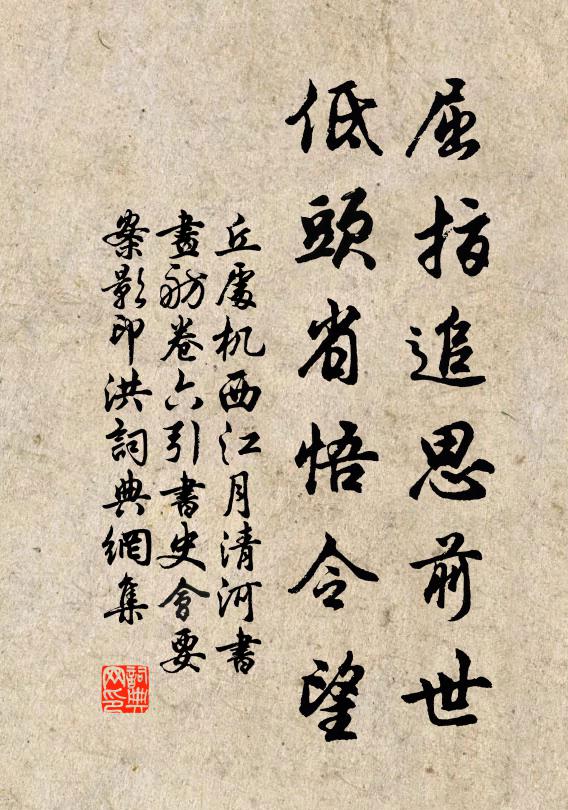 屈指追思前世
低頭省悟令望
丘處机西江月清河書
畫舫卷六引書史會要
案影印洪詞典網集
詞典网印